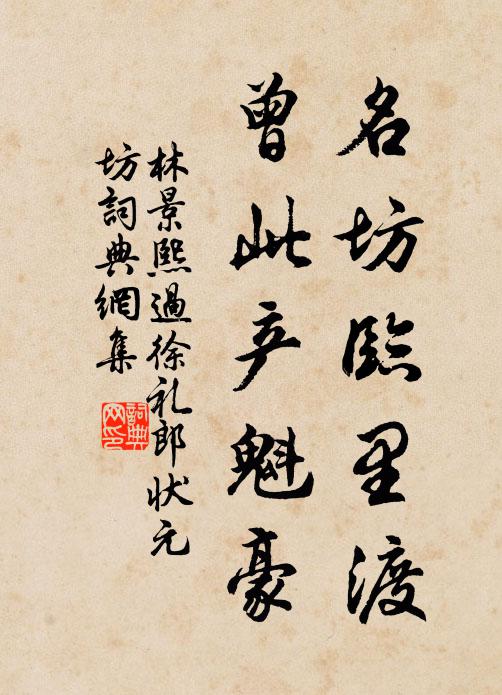 名坊臨里渡
曾此产魁豪
林景熙過徐礼郎状元
坊詞典網集
詞典网印